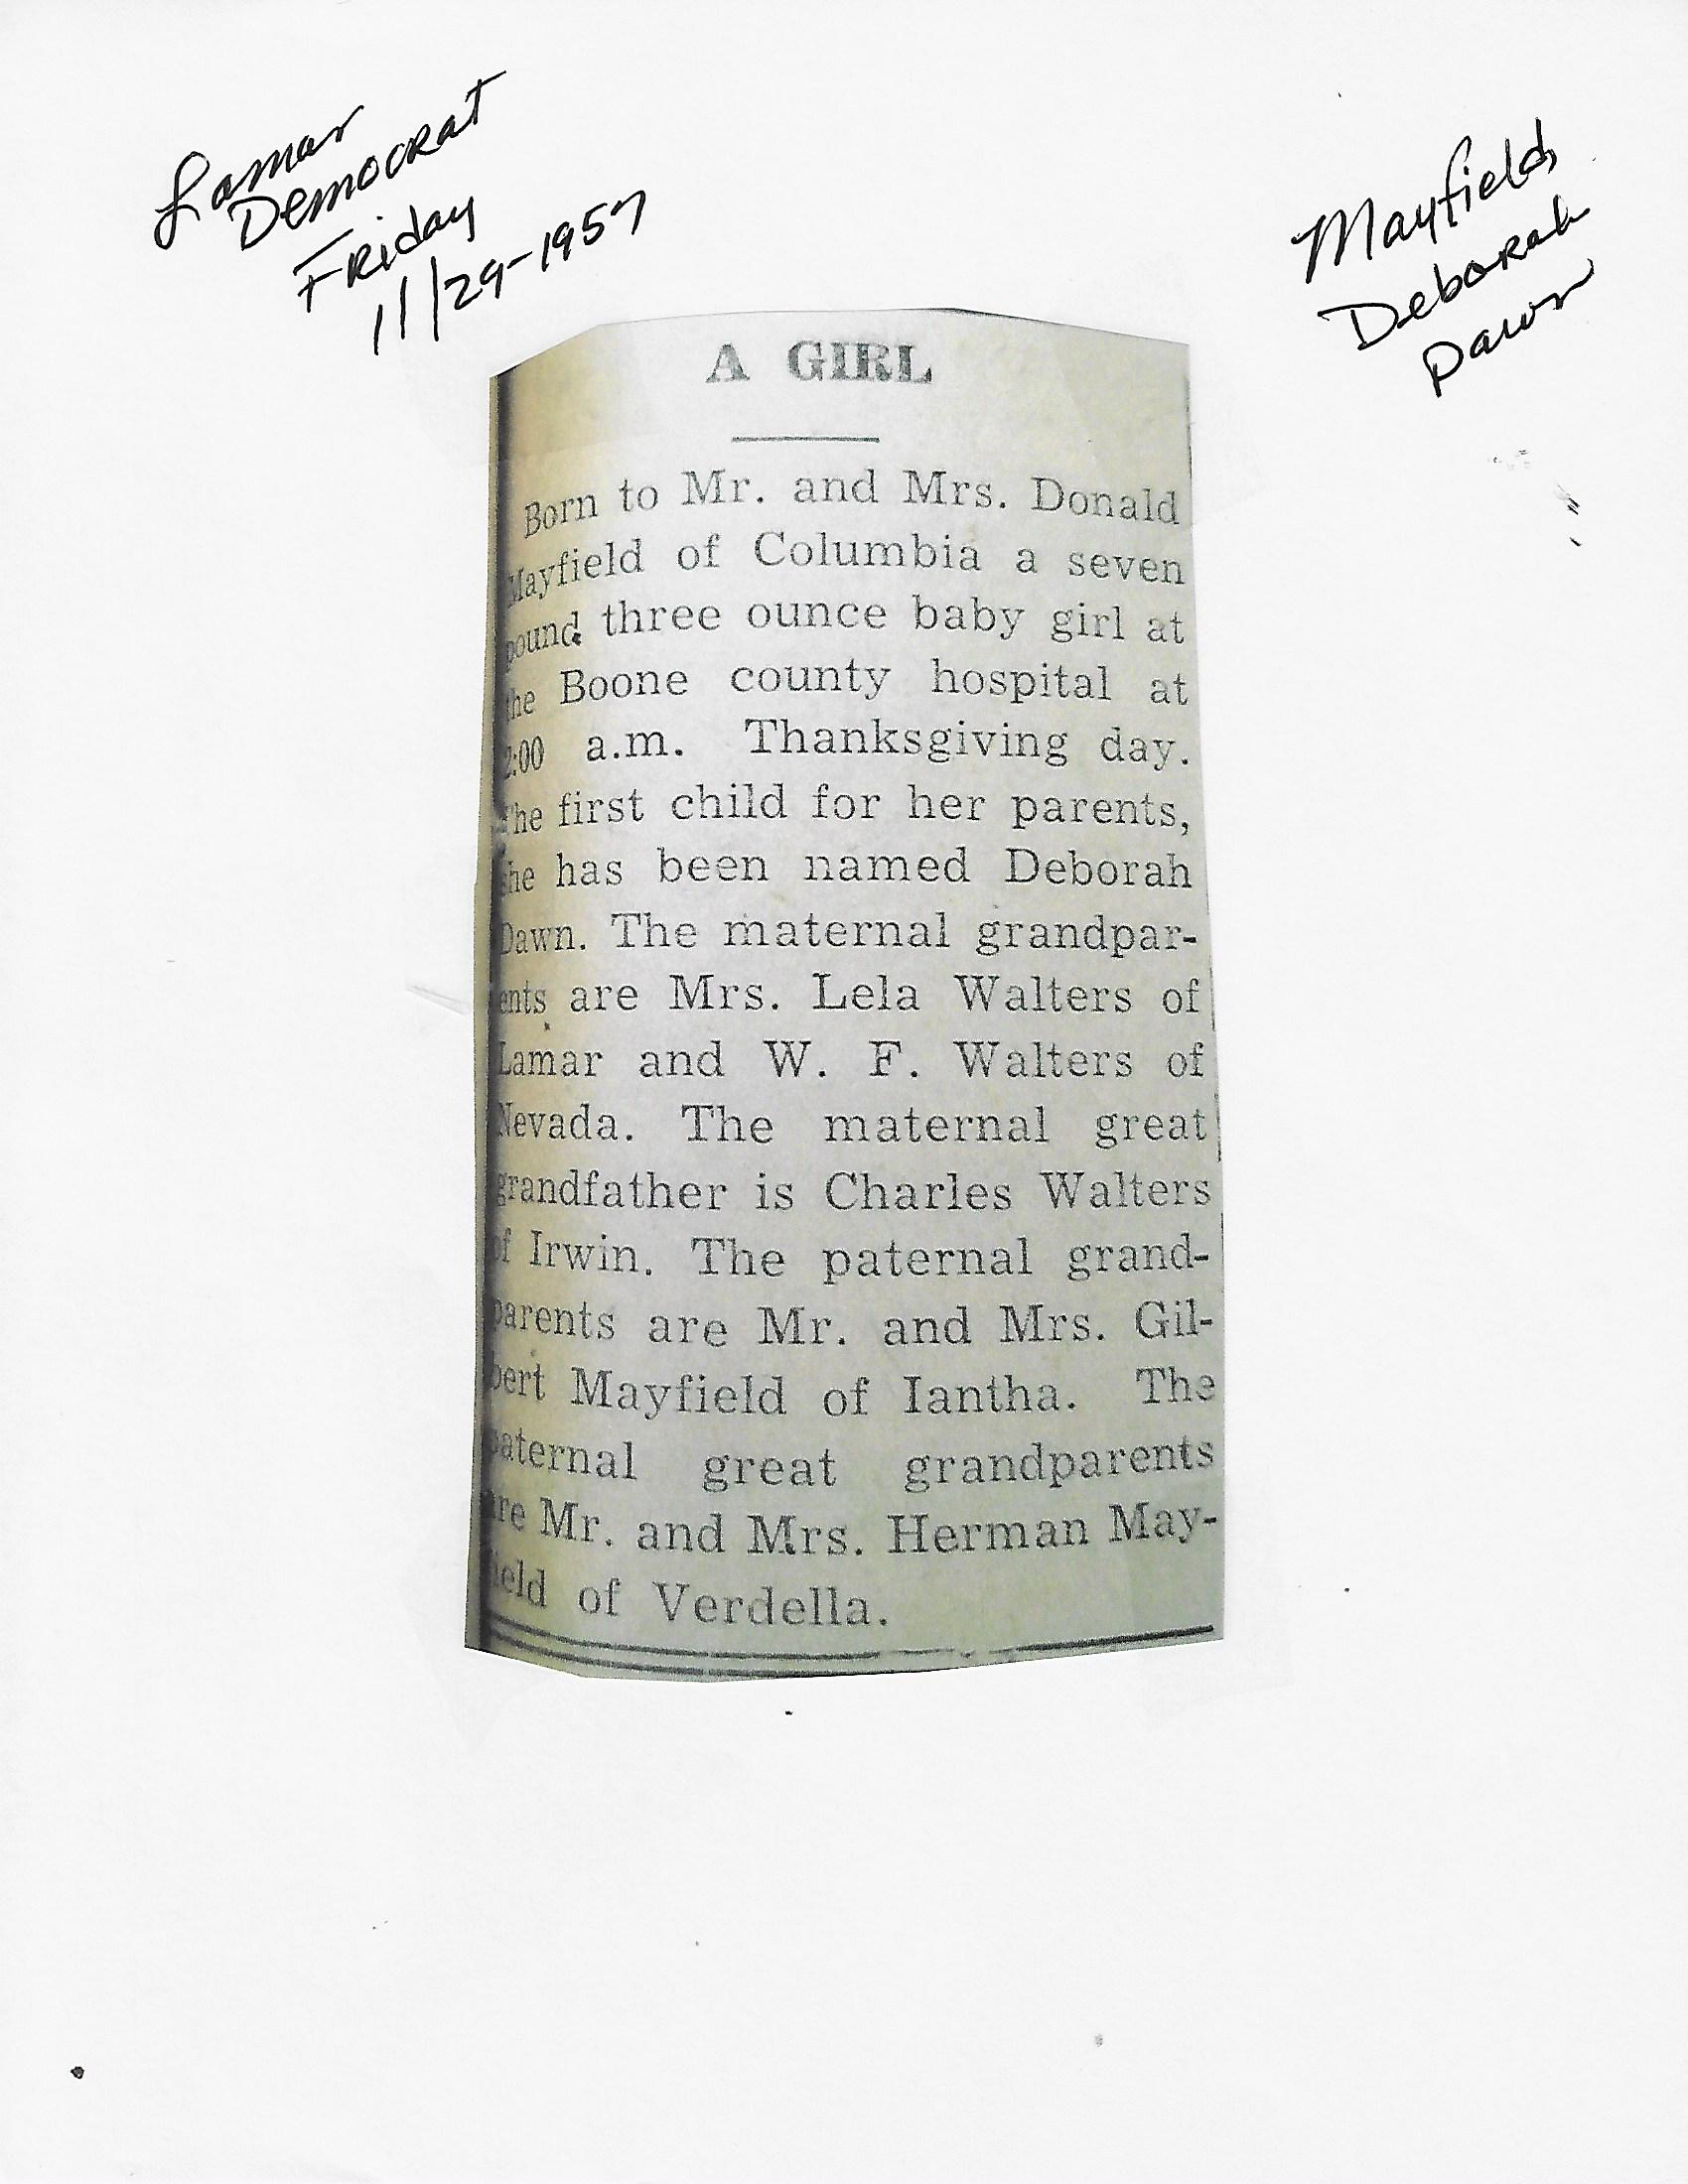 Lamar
Democrat
Friday
11/29-1957
Mayfield,
Deborah
Dawn
A GIRL
Born to Mr. and Mrs. Donald
Mayfield of Columbia a seven
pound three ounce baby girl at
the Boone county hospital at
2:00 a.m. Thanksgiving day.
The first child for her parents,
she has been named Deborah
Dawn. The maternal grandpar-
ents are Mrs. Lela Walters of
Lamar and W. F. Walters of
Nevada. The maternal great
grandfather is Charles Walters
of Irwin. The paternal grand-
parents are Mr. and Mrs. Gil-
bert Mayfield of Iantha. The
paternal great grandparents
are Mr. and Mrs. Herman May-
field of Verdella.